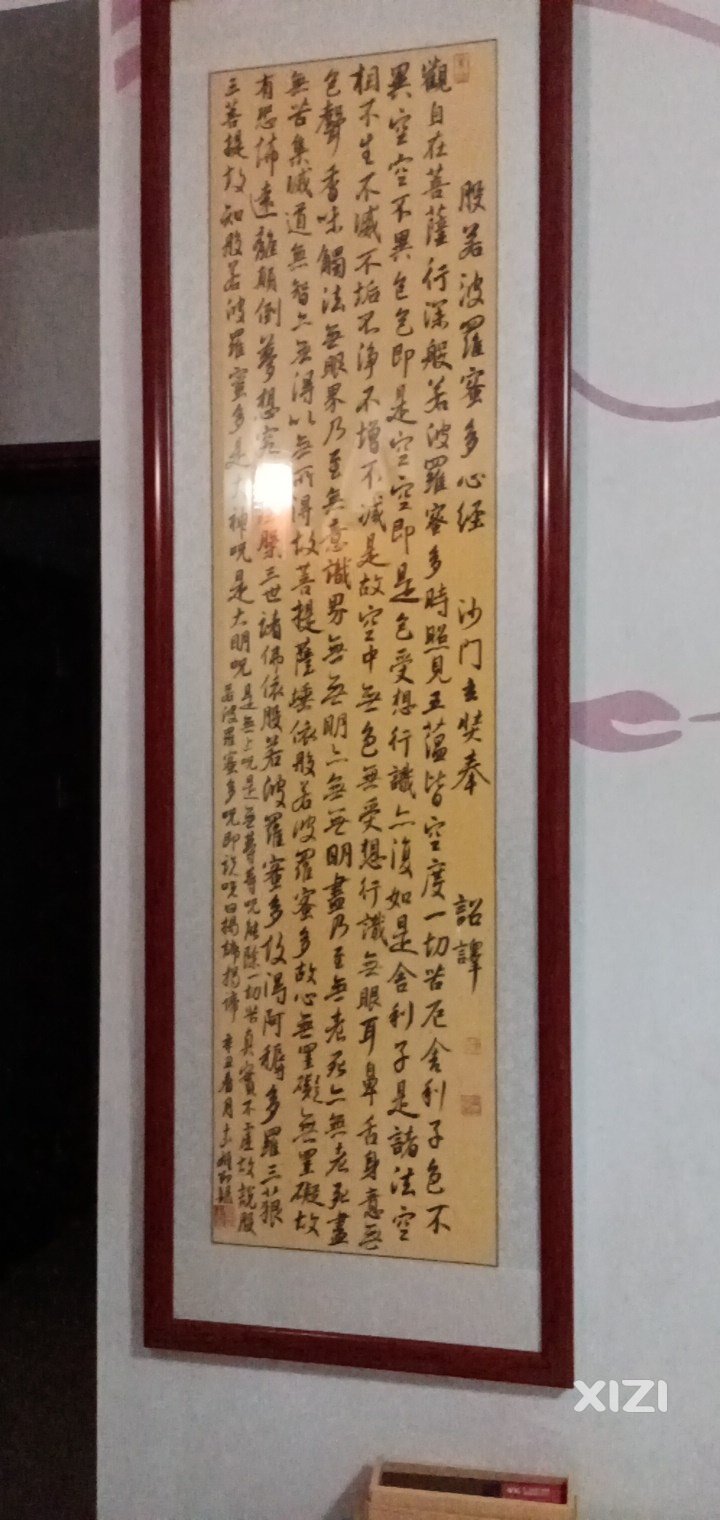 般若波羅蜜多心经 沙门玄奘奉 詔譯
觀自在菩薩行深般若波羅蜜多時照見五蕴皆空度一切苦厄舍利子色不
異空空不異色色即是空空即是色受想行識亦復如是舍利子是諸法空
相不生不滅不垢不淨不增不减是故空中無色無受想行識無眼耳鼻舌身意無
色聲香味觸法無眼界乃至無意識界無無明亦無無明盡乃至無老死亦無老死盡
無苦集滅道無智亦無得以無所得故菩提薩埵依般若波羅蜜多故心無罣礙無罣礙故
有恐怖遠離顛倒夢想究槃三世諸佛依般若波羅蜜多故得阿耨多羅三藐
三菩提故知般若波羅蜜多是大神咒是大明咒
是無上咒是無等等咒能除一切苦真實不虛故說般
若波羅蜜多咒即說咒曰揭諦揭諦 辛丑春月
XIZI